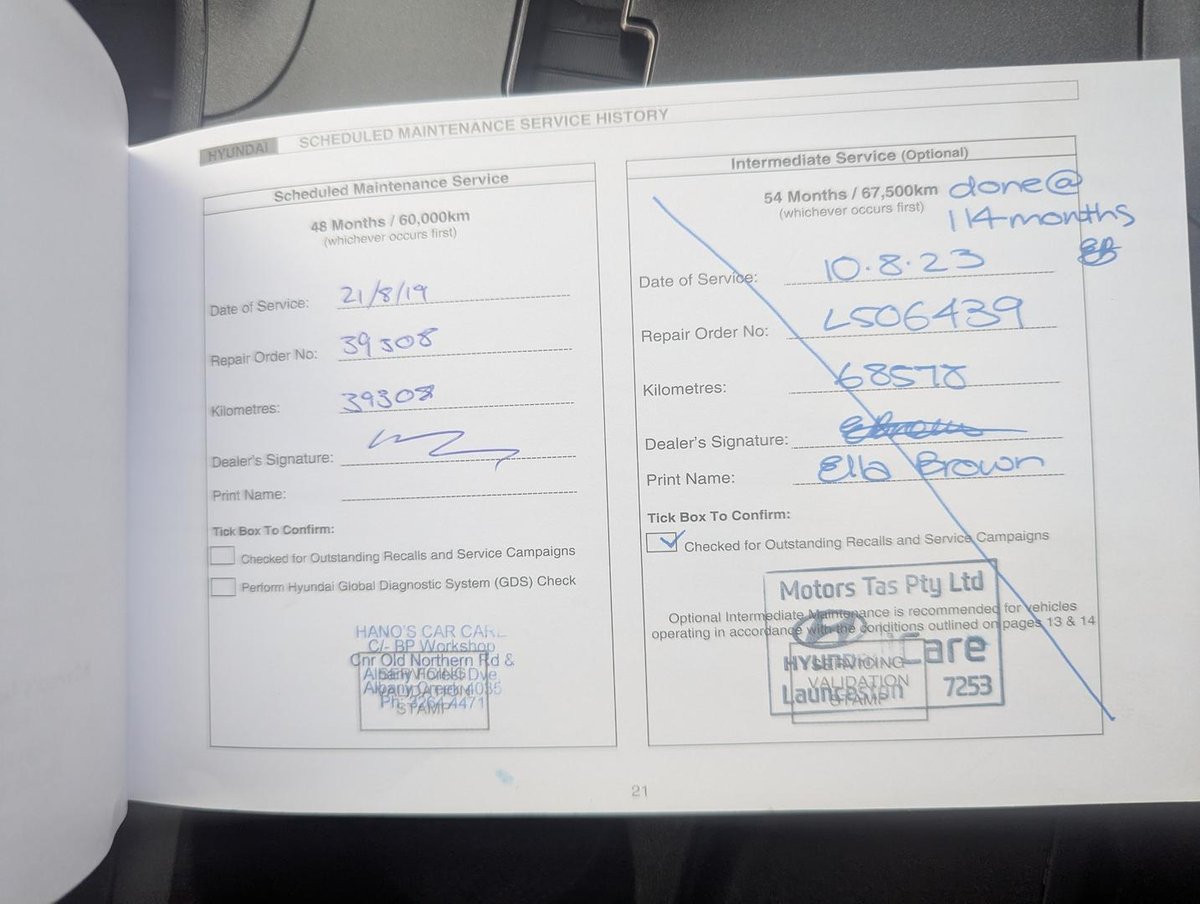 HYUNDAI SCHEDULED MAINTENANCE SERVICE HISTORY
Scheduled Maintenance Service
48 Months / 60,000km
(whichever occurs first)
Date of Service: 21/8/19
Repair Order No: 39308
Kilometres: 39308
Dealer's Signature:
Print Name:
Tick Box To Confirm:
Checked for Outstanding Recalls and Service Campaigns
Perform Hyundai Global Diagnostic System (GDS) Check
HANO'S CAR CARE
C/- BP Workshop
Cnr Old Northern Rd &
Albany Forest Dve
Albany Creek 4035
Ph: 3264 4471
SERVICING
VALIDATION
STAMP
Intermediate Service (Optional)
54 Months / 67,500km done@
(whichever occurs first) 114 months
Date of Service: 10.8.23
Repair Order No: LS06439
Kilometres: 68578
Dealer's Signature:
Print Name: Ella Brown
Tick Box To Confirm:
Checked for Outstanding Recalls and Service Campaigns
Optional Intermediate Maintenance is recommended for vehicles
operating in accordance with the conditions outlined on pages 13 & 14
Motors Tas Pty Ltd
Care
Launceston 7253
SERVICING
VALIDATION
STAMP
21